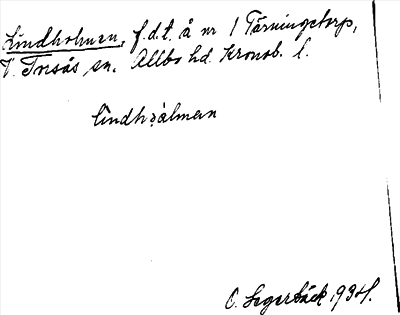 Lindholmen, f.d.t. å nr 1 Tärningetorp,
V. Torsås sn. Allbo hd. Kronob. l.
lindhålmen
O. Segerbäck 1934.